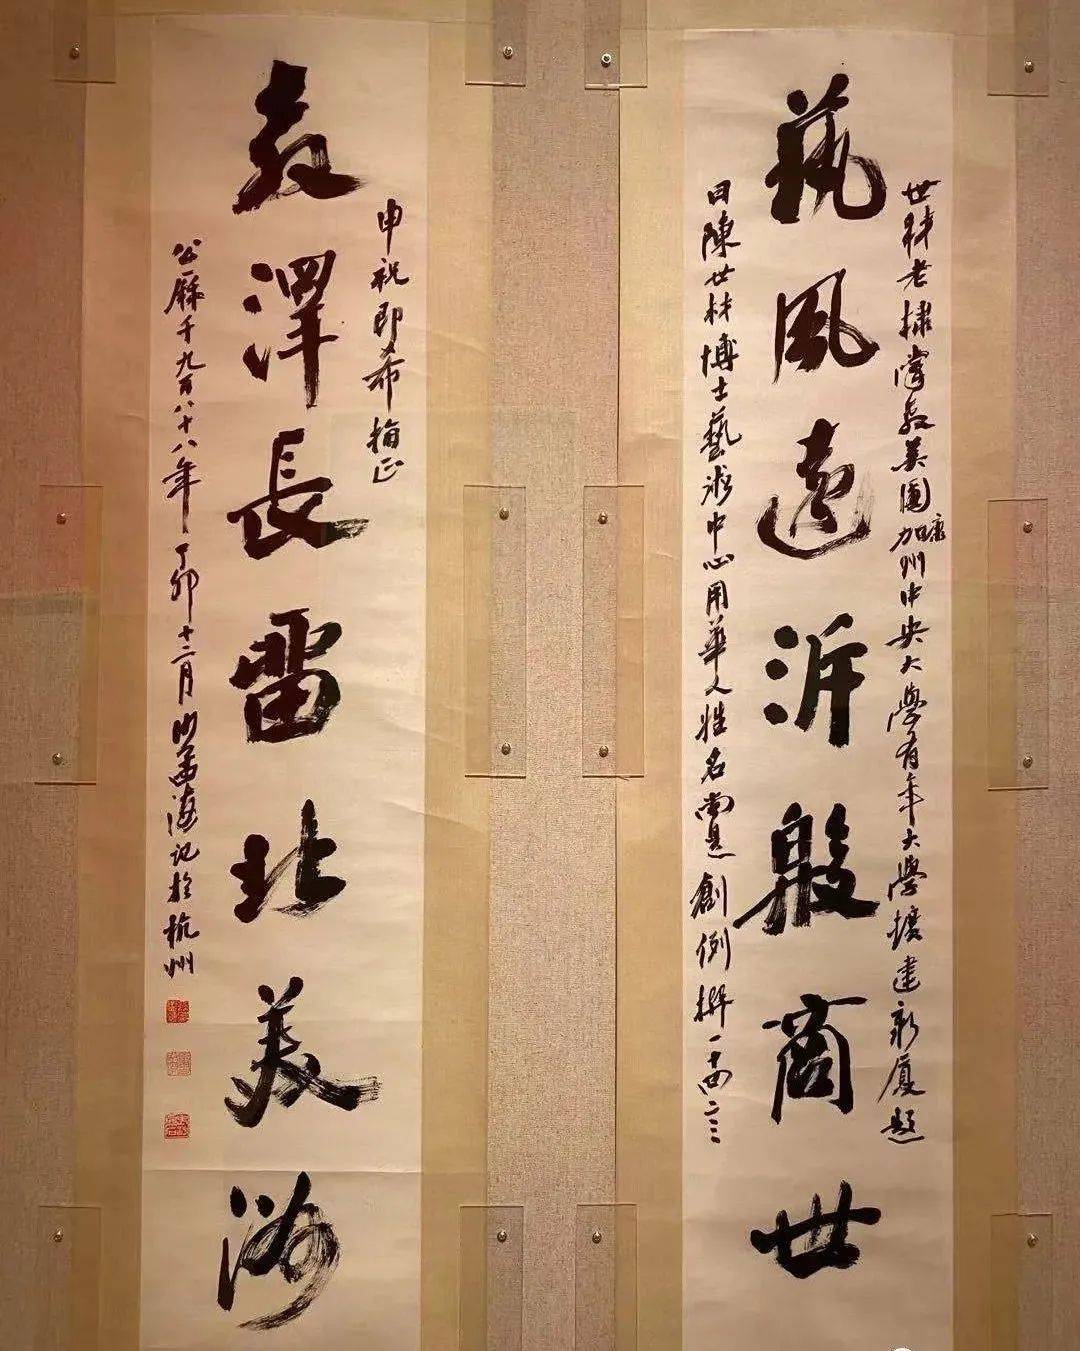 世材老棣掌教美國加康州中央大學有年大學擴建新廈題
藝風遠泝殷商世
曰陳世材博士藝術中心用華人姓名尚是創例撰一十四言
申祝即希指正
教澤長畱北美洲
公曆千九百八十八年丁卯十二月沙孟海記於杭州